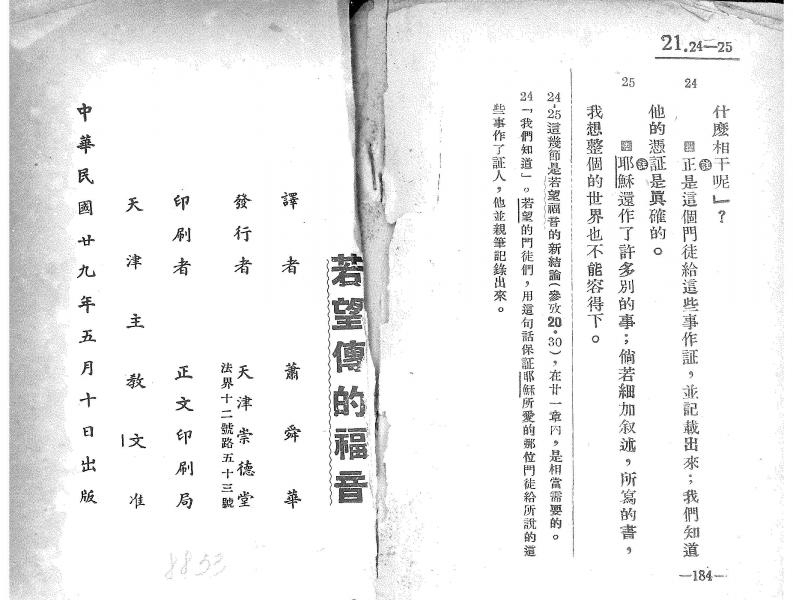 21.24—25
什麼相干呢」？
24 註正是這個門徒給這些事作証，並記載出來；我們知道
他的憑証是真確的。
25 註耶穌還作了許多別的事；倘若細加叙述，所寫的書，
我想整個的世界也不能容得下。
24-25這幾節是若望福音的新結論（參攷20.30），在廿一章內，是相當需要的。
24「我們知道」。若望的門徒們，用這句話保証耶穌所愛的那位門徒給所說的這
些事作了証人，他並親筆記錄出來。
—184—
若望傳的福音
譯者 蕭舜華
發行者 天津崇德堂
法界十二號路五十三號
印刷者 正文印刷局
天津主教文准
中華民國廿九年五月十日出版
8853